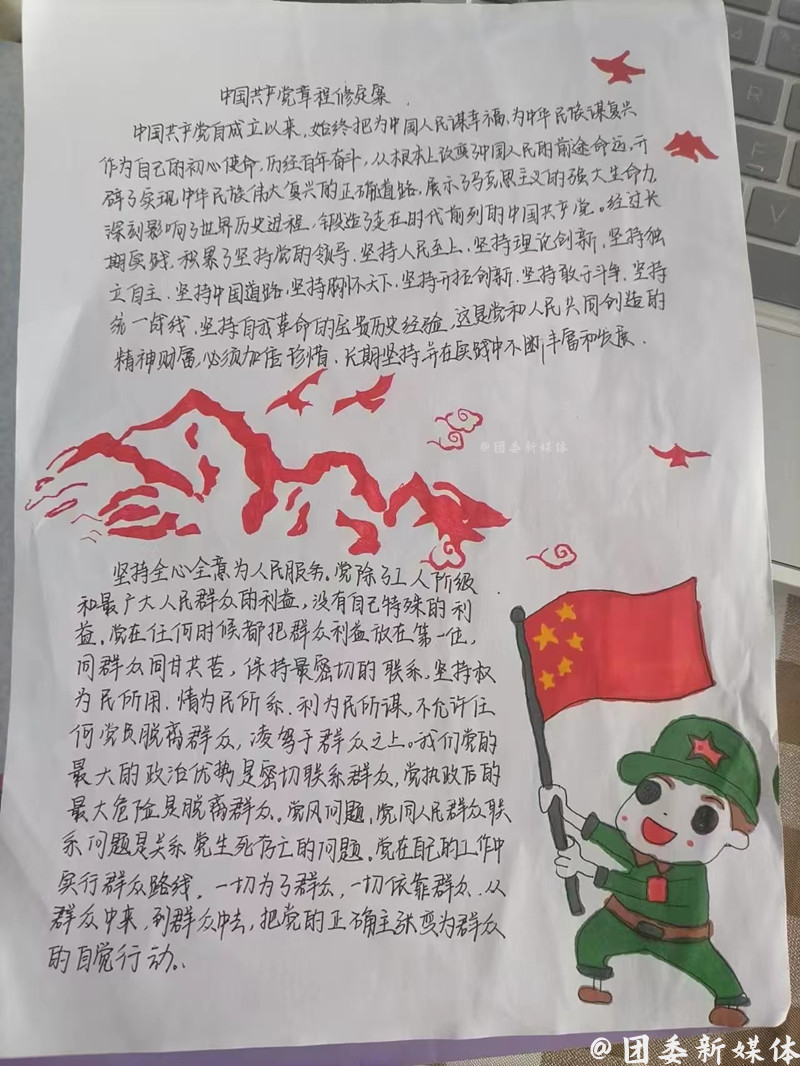 中国共产党章程修定案
中国共产党自成立以来,始终把为中国人民谋幸福、为中华民族谋复兴
作为自己的初心使命,历经百年奋斗,从根本上改变了中国人民的前途命运,开
辟了实现中华民族伟大复兴的正确道路,展示了马克思主义的强大生命力
深刻影响了世界历史进程,锻造了走在时代前列的中国共产党。经过长
期实践,积累了坚持党的领导、坚持人民至上、坚持理论创新、坚持独
立自主、坚持中国道路、坚持胸怀天下、坚持开拓创新、坚持敢于斗争、坚持
统一战线、坚持自我革命的宝贵历史经验,这是党和人民共同创造的
精神财富,必须加倍珍惜、长期坚持,并在实践中不断丰富和发展.
@团委新媒体
坚持全心全意为人民服务。党除了工人阶级
和最广大人民群众的利益,没有自己特殊的利
益。党在任何时候都把群众利益放在第一位,
同群众同甘共苦,保持最密切的联系,坚持权
为民所用、情为民所系、利为民所谋,不允许任
何党员脱离群众,凌驾于群众之上。我们党的
最大的政治优势是密切联系群众,党执政后的
最大危险是脱离群众。党风问题,党同人民群众联
系问题是关系党生死存亡的问题。党在自己的工作中
实行群众路线,一切为了群众,一切依靠群众,从
群众中来,到群众中去,把党的正确主张变为群众
的自觉行动。
@团委新媒体